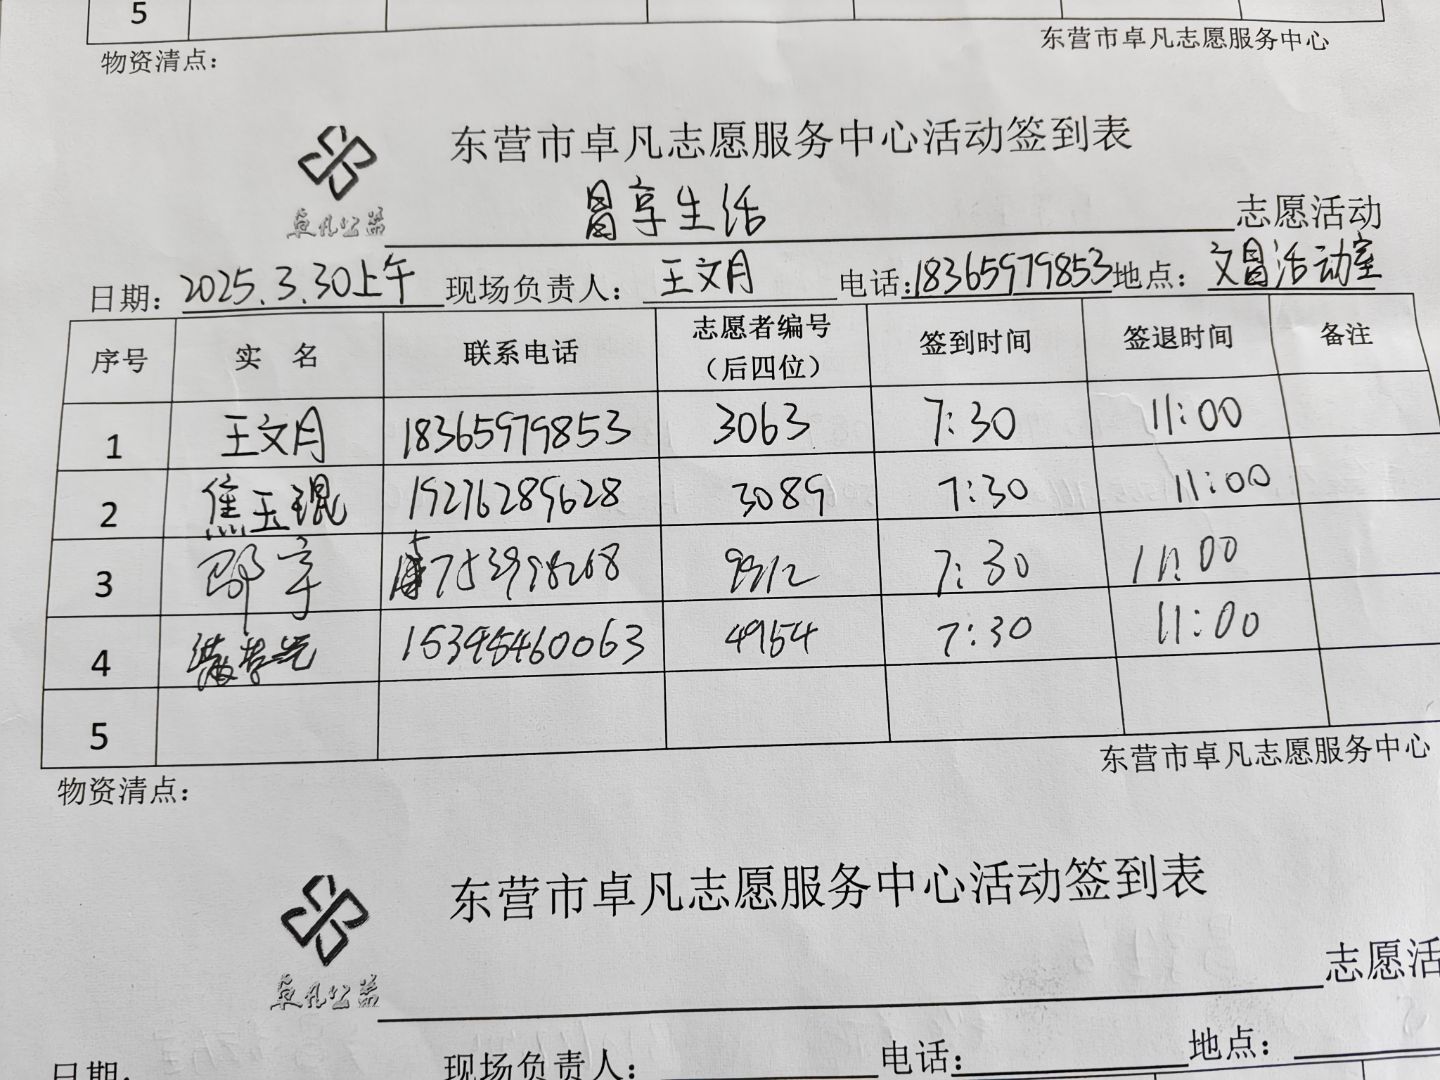 5
物资清点：
东营市卓凡志愿服务中心
东营市卓凡志愿服务中心活动签到表
卓凡公益
昌享生活 志愿活动
日期：2025.3.30上午 现场负责人：王文月 电话：18365979853 地点：文昌活动室
序号 实 名 联系电话 志愿者编号（后四位） 签到时间 签退时间 备注
1 王文月 18365979853 3063 7:30 11:00
2 焦玉琨 19276289628 3089 7:30 11:00
3 邵宇 9312 7:30 11:00
4 4954 7:30 11:00
5
物资清点：
东营市卓凡志愿服务中心
东营市卓凡志愿服务中心活动签到表
卓凡公益
志愿活
日期： 现场负责人： 电话： 地点：